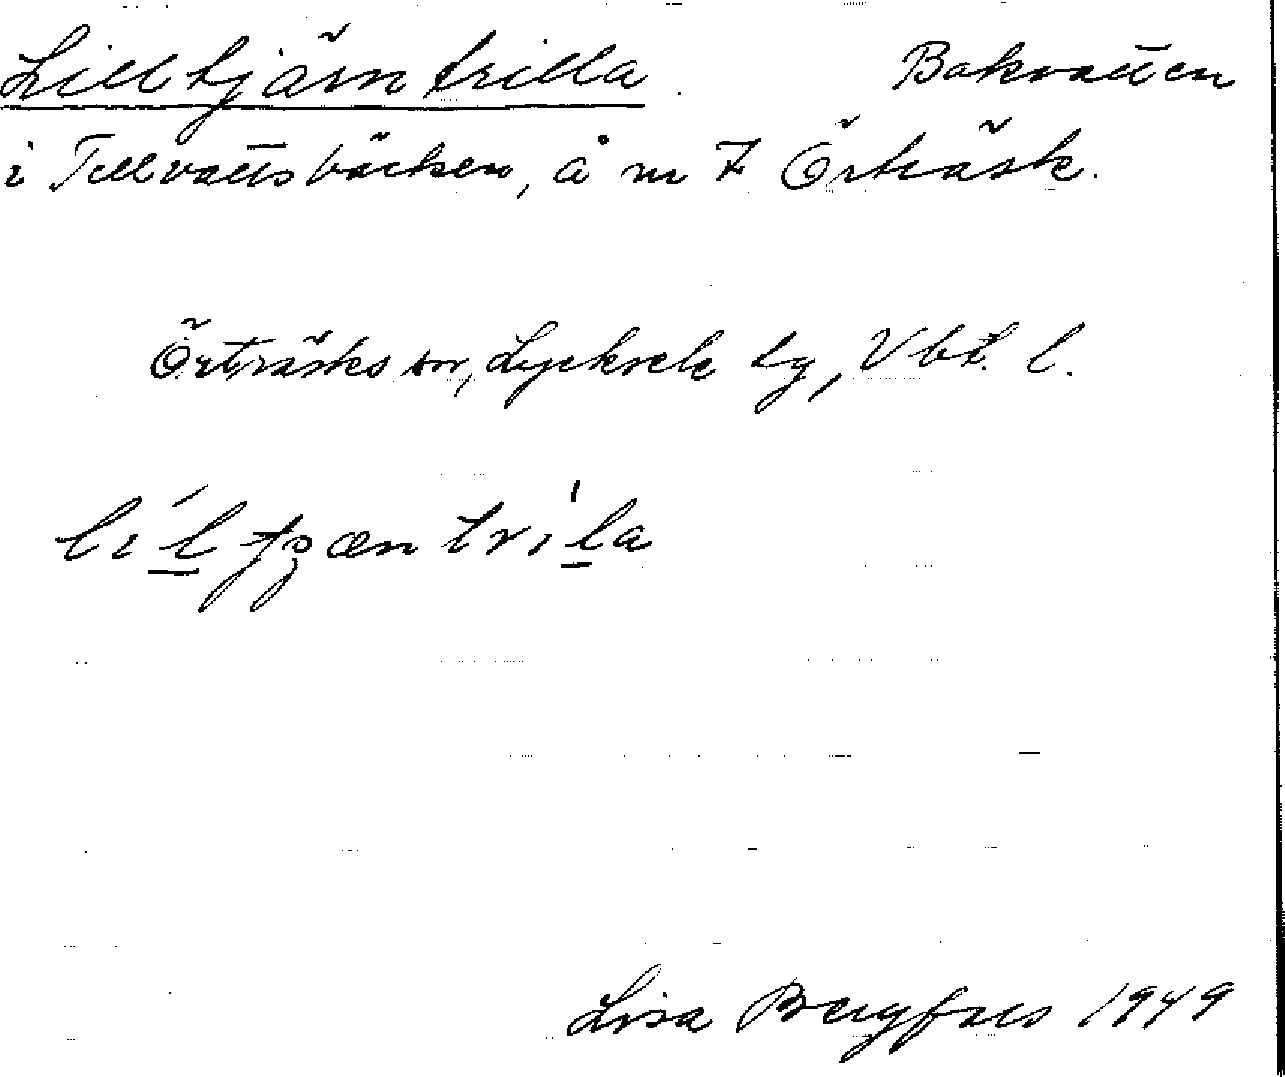 Lilltjärntrilla Bakvatten
i Tillvattsbäcken, å m 7 Örträsk.
Örträsks sn, Lycksele tg, Vbt. l.
Lisa Bergfors 1949